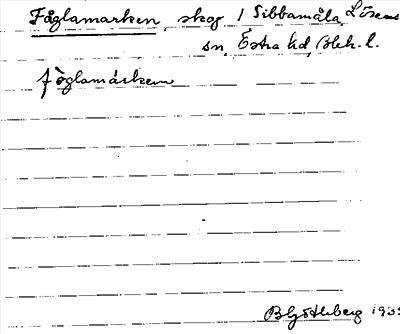 Fåglamarken, skog i Sibbamåla, Lösens
sn, Östra hd, Blek. l.
fòglamárken
B Göthberg 193